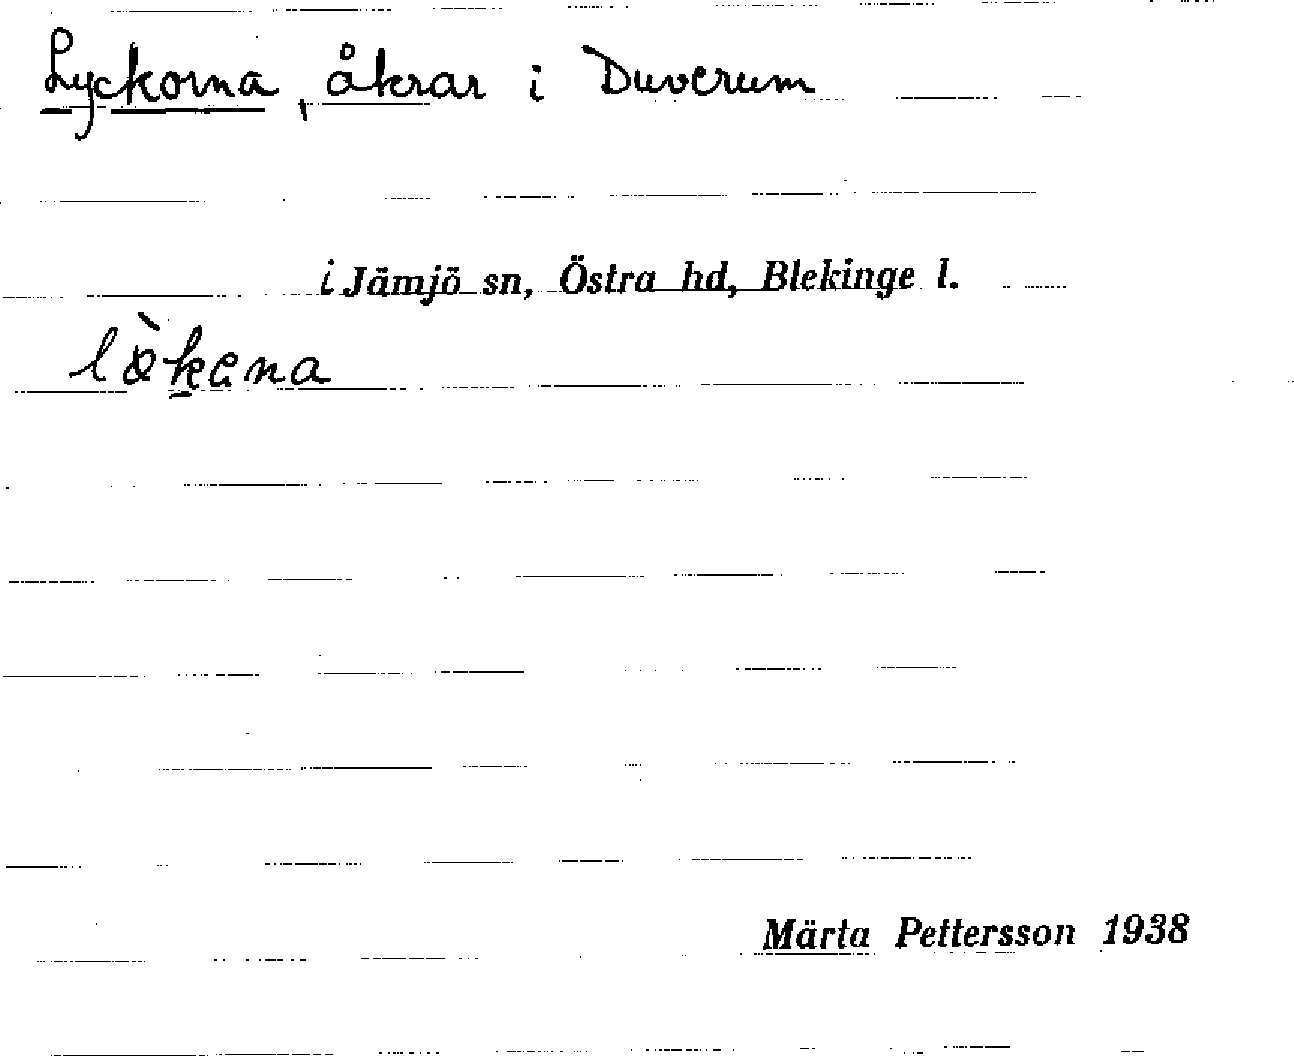 Lyckorna, åkrar i Duverum
i Jämjö sn, Östra hd, Blekinge l.
lø̀kena
Märta Pettersson 1938